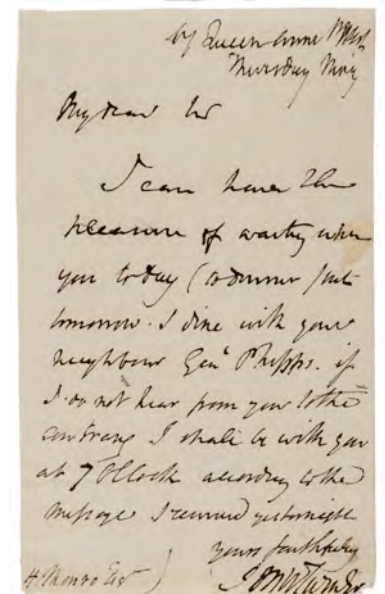 47 Queen Anne West
Thursday Mory
My dear Sir
I can have the
pleasure of waiting upon
you to day (to dinner) but
tomorrow. I dine with your
neighbour Genl Phipps. if
I do not hear from you to the
contrary I shall be with you
at 7 oClock according to the
message I received yesternight
yours faithfully
J M W Turner
H. Monro Esqr